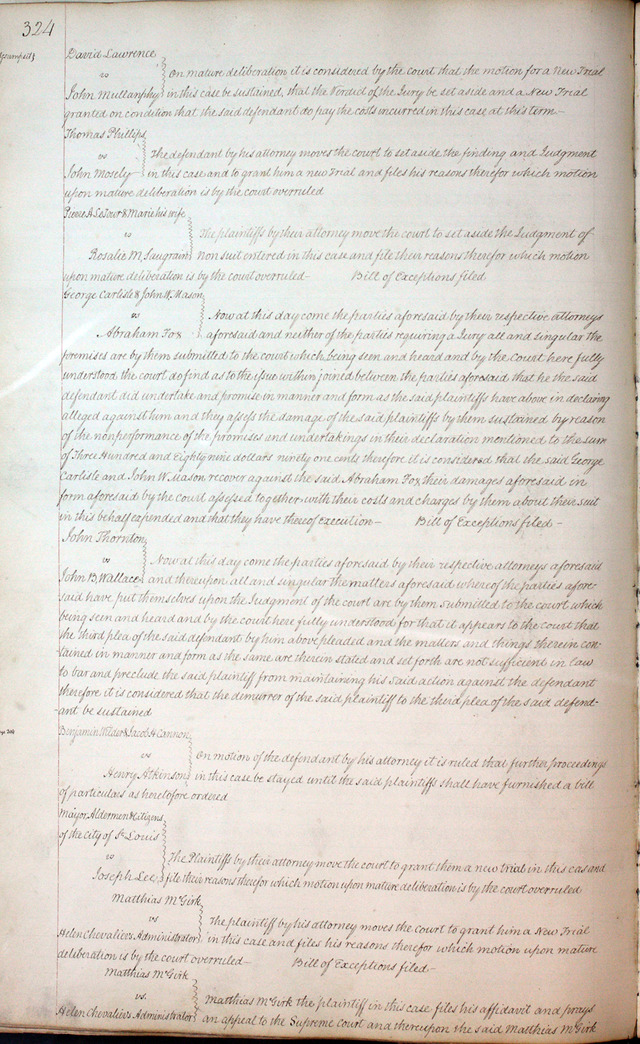 324
David Lawrence
vs
On mature deliberation it is considered by the court that the motion for a New Trial
John Mullanphy in this case be sustained, that the Verdict of the Jury be set aside and a New Trial
granted on condition that the said defendant do pay the costs incurred in this case at this term —
Thomas Phillips
vs
The defendant by his attorney moves the court to set aside the finding and Judgment
John Mosely in this case and to grant him a new Trial and files his reasons therefor which motion
upon mature deliberation is by the court overruled
Pierre A LeDour & Marie his wife
vs
The plaintiffs by their attorney move the court to set aside the Judgment of
Rosalie M. Saugrain Non suit entered in this case and file their reasons therefor which motion
upon mature deliberation is by the court overruled — Bill of Exceptions filed
George Carlisle & John W. Mason
vs
Now at this day come the parties aforesaid by their respective attorneys
Abraham Fox aforesaid and neither of the parties requiring a Jury all and singular the
premises are by them submitted to the court which being seen and heard and by the Court here fully
understood the court do find as to the issue within joined between the parties aforesaid that he the said
defendant did undertake and promise in manner and form as the said plaintiffs have above in declaring
alleged against him and they assess the damage of the said plaintiffs by them sustained by reason
of the nonperformance of the promises and undertakings in their declaration mentioned to the sum
of Three Hundred and Eighty nine dollars ninety one cents therefore it is considered that the said George
Carlisle and John W. Mason recover against the said Abraham Fox their damages aforesaid in
form aforesaid by the court assessed together with their costs and charges by them about their suit
in this behalf expended and that they have thereof execution — Bill of Exceptions filed —
John Thornton
vs
Now at this day come the parties aforesaid by their respective attorneys aforesaid
John B. Wallace and thereupon all and singular the matters aforesaid whereof the parties afore-
said have put themselves upon the Judgment of the court are by them submitted to the court which
being seen and heard and by the court here fully understood for that it appears to the court that
the third plea of the said defendant by him above pleaded and the matters and things therein con-
tained in manner and form as the same are therein stated and set forth are not sufficient in law
to bar and preclude the said plaintiff from maintaining his said action against the defendant
therefore it is considered that the demurrer of the said plaintiff to the third plea of the said defend-
ant be sustained
Benjamin Wilder & Jacob H Cannon
vs
On motion of the defendant by his attorney it is ruled that further proceedings
Henry Atkinson in this case be stayed until the said plaintiffs shall have furnished a bill
of particulars as heretofore ordered
Mayor Aldermen & Citizens
of the City of St Louis
vs
The Plaintiffs by their attorney move the court to grant them a new trial in this case and
Joseph Lee file their reasons therefor which motion upon mature deliberation is by the court overruled
Matthias McGirk
vs
The plaintiff by his attorney moves the Court to grant him a New Trial
Helen Chevalier's Administrator in this case and files his reasons therefor which motion upon mature
deliberation is by the court overruled — Bill of Exceptions filed —
Matthias McGirk
vs.
Matthias McGirk the plaintiff in this case files his affidavit and prays
Helen Chevalier's Administrator an appeal to the Supreme Court and thereupon the said Matthias McGirk